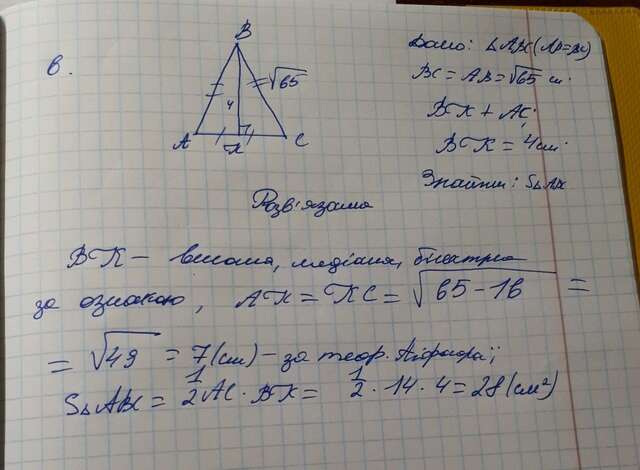 в.
B
√65
4
A
K
C
Дано: △ABC (AB=BC)
BC = AB = √65 см.
BK ⊥ AC
BK = 4см.
Знайти: S△ABC
Розв'язання
BK – висота, медіана, бісектриса
за ознакою, AK = KC = √65-16 =
= √49 = 7(см) – за теор. Піфагора;
S△ABC = 1/2 AC · BK = 1/2 · 14 · 4 = 28 (см²)